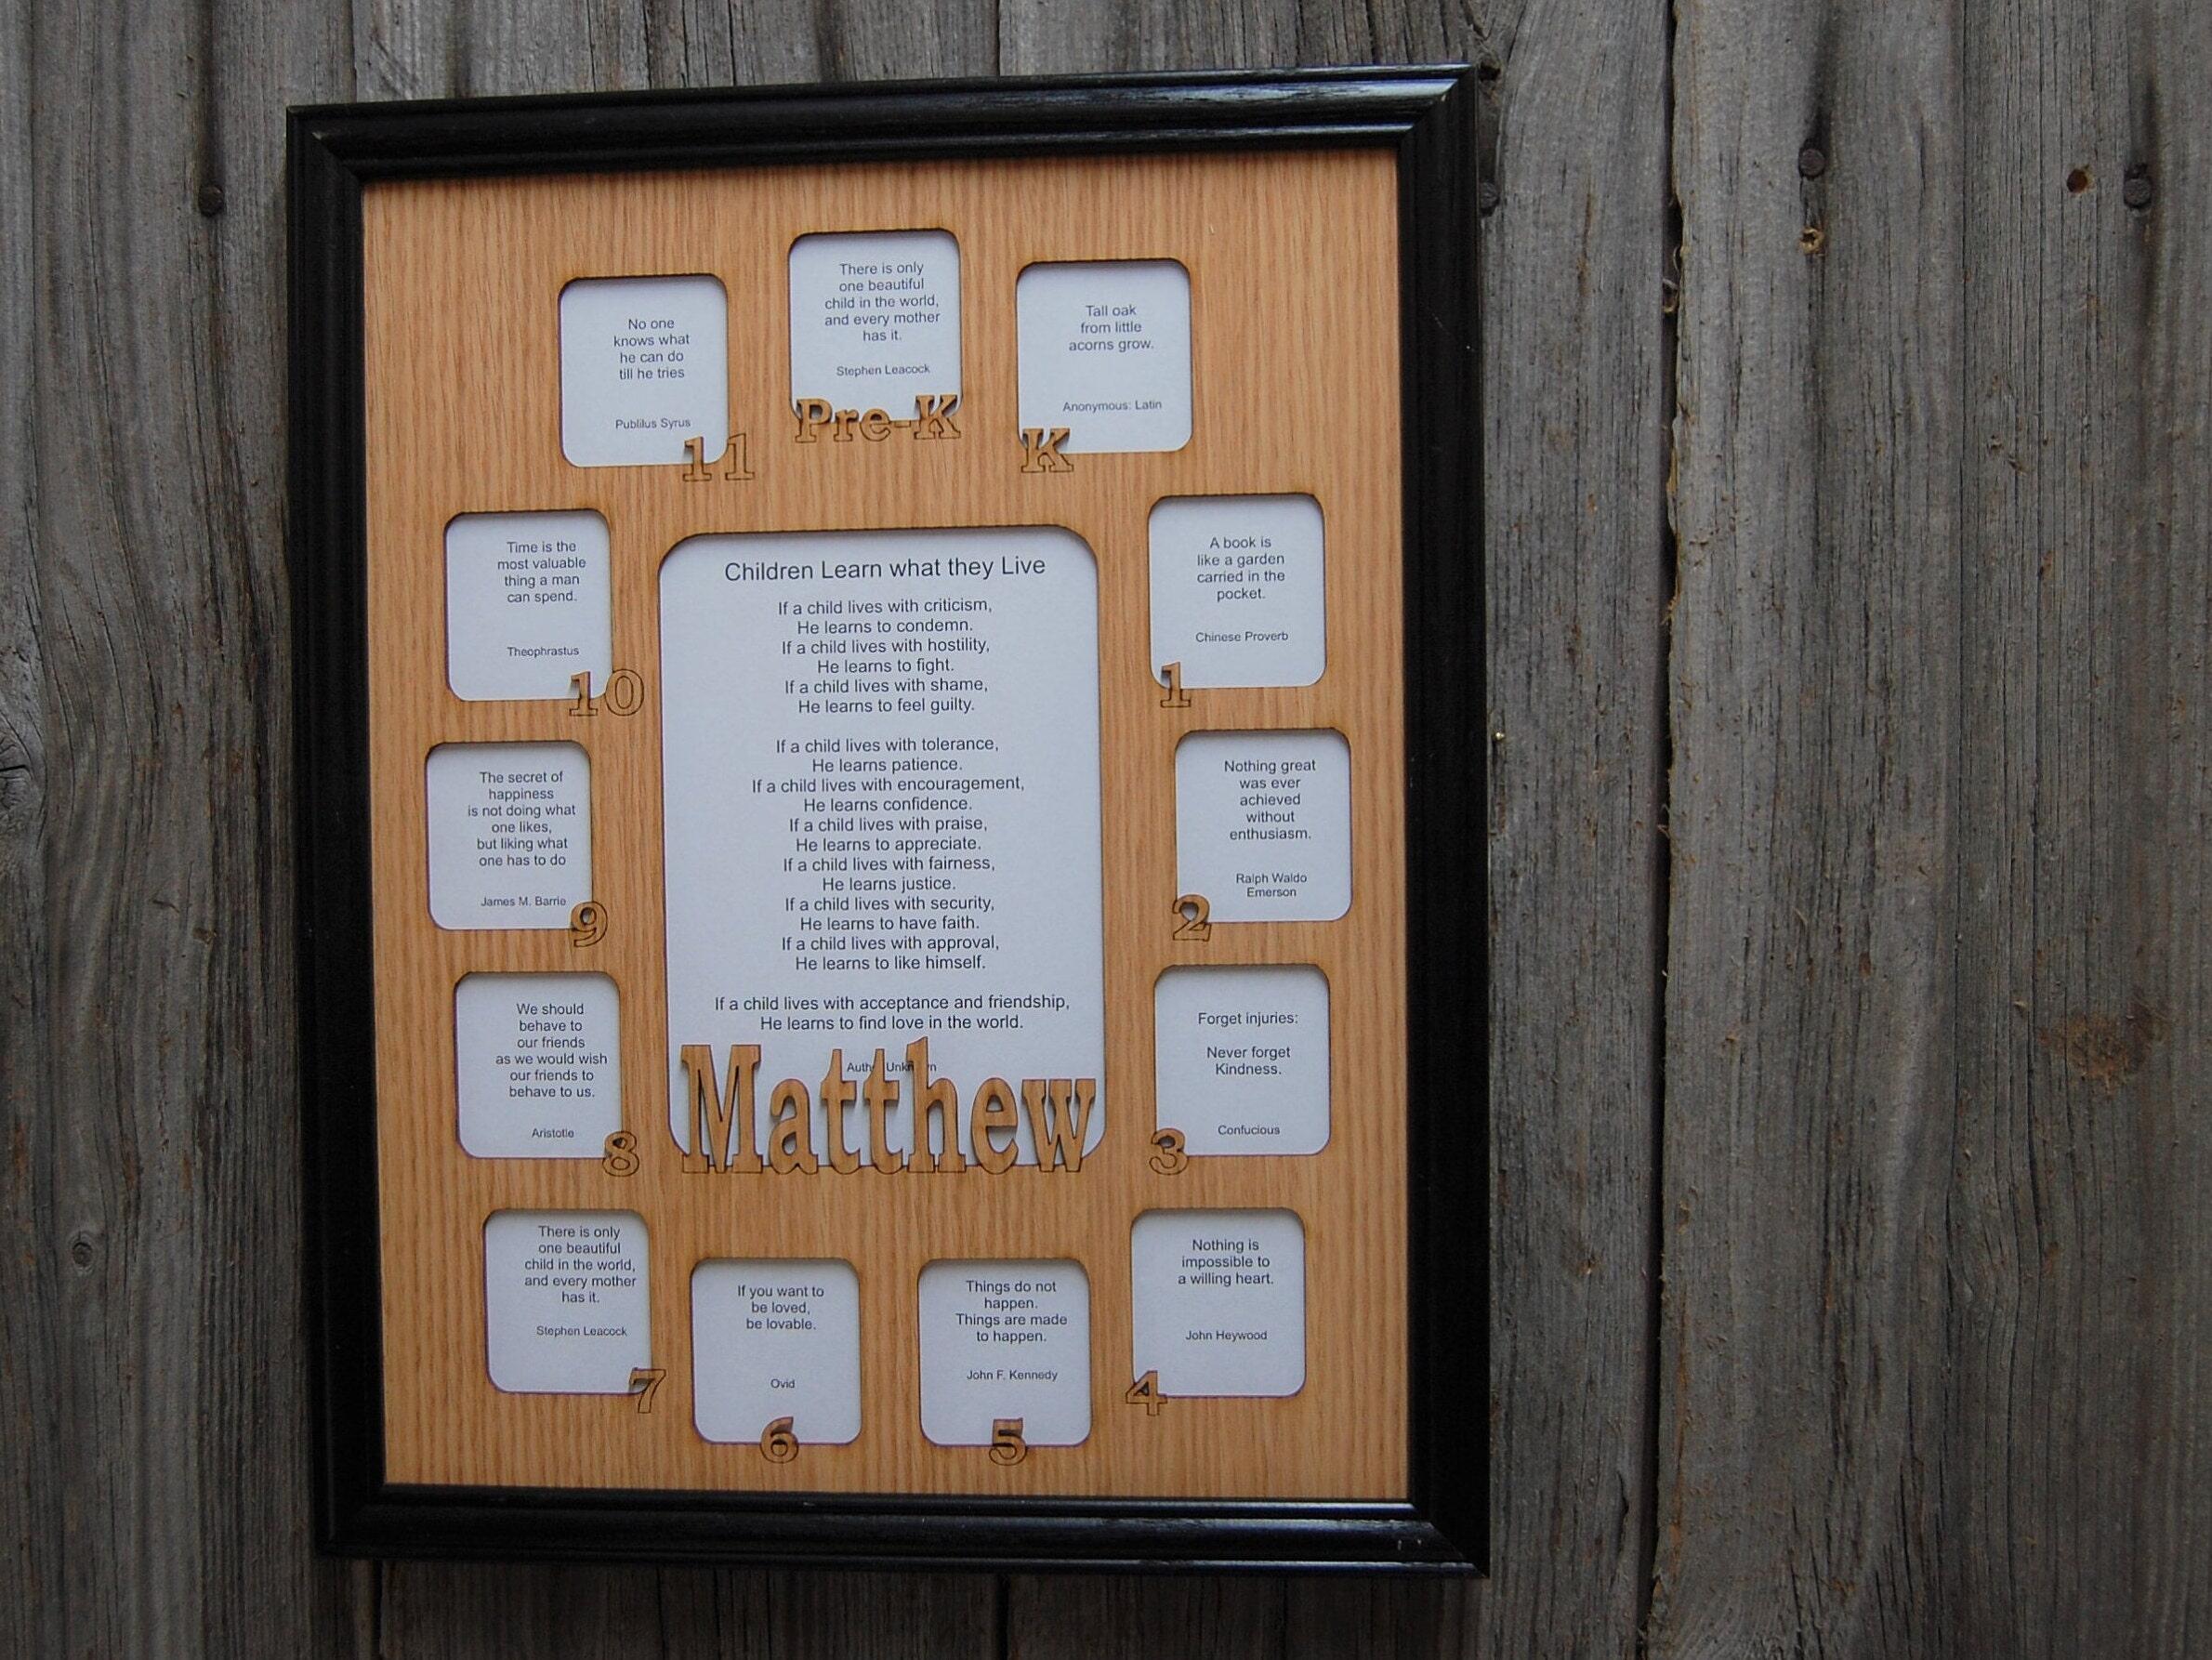 There is only
one beautiful
child in the world,
and every mother
has it.
Stephen Leacock
Pre-K
Tall oak
from little
acorns grow.
Anonymous: Latin
K
A book is
like a garden
carried in the
pocket.
Chinese Proverb
1
Nothing great
was ever
achieved
without
enthusiasm.
Ralph Waldo
Emerson
2
Forget injuries:
Never forget
Kindness.
Confucious
3
Nothing is
impossible to
a willing heart.
John Heywood
4
Things do not
happen.
Things are made
to happen.
John F. Kennedy
5
If you want to
be loved,
be lovable.
Ovid
6
There is only
one beautiful
child in the world,
and every mother
has it.
Stephen Leacock
7
We should
behave to
our friends
as we would wish
our friends to
behave to us.
Aristotle
8
The secret of
happiness
is not doing what
one likes,
but liking what
one has to do
James M. Barrie
9
Time is the
most valuable
thing a man
can spend.
Theophrastus
10
No one
knows what
he can do
till he tries
Publilus Syrus
11
Children Learn what they Live
If a child lives with criticism,
He learns to condemn.
If a child lives with hostility,
He learns to fight.
If a child lives with shame,
He learns to feel guilty.
If a child lives with tolerance,
He learns patience.
If a child lives with encouragement,
He learns confidence.
If a child lives with praise,
He learns to appreciate.
If a child lives with fairness,
He learns justice.
If a child lives with security,
He learns to have faith.
If a child lives with approval,
He learns to like himself.
If a child lives with acceptance and friendship,
He learns to find love in the world.
Matthew